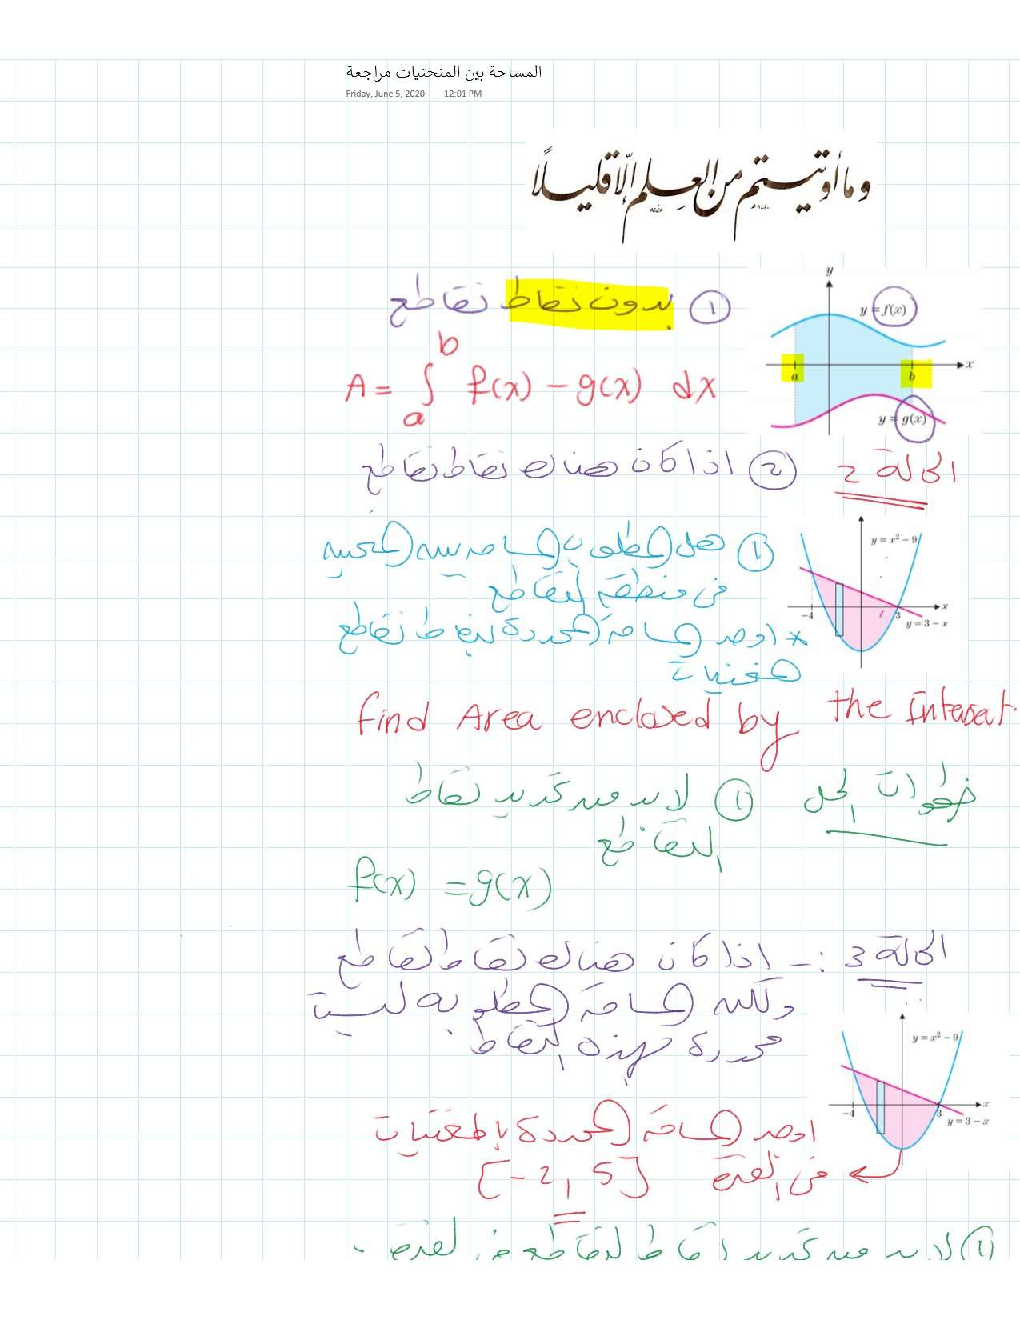 المساحة بين المنحنيات مراجعة
Friday, June 5, 2020 12:01 PM
وما أوتيتم من العلم إلا قليلاً
① بدون نقاط تقاطع
y
y = f(x)
x
a
b
y = g(x)
A = ∫ₐᵇ f(x) − g(x) dx
الحالة 2
② اذا كان هناك نقاط تقاطع
y = x² − 9
x
−4
3
y = 3 − x
① هل المطلوب المساحة بين المنحنيين
في منطقة التقاطع
* اوجد المساحة المحددة بنقاط تقاطع
المنحنيات
find Area enclosed by the Intersect
خطوات الحل
① لابد من تحديد نقاط
التقاطع
f(x) = g(x)
الحالة 3 :- اذا كان هناك نقاط تقاطع
ولكن المساحة المطلوبة ليست
محددة بهذه النقاط
y = x² − 9
x
−4
3
y = 3 − x
اوجد المساحة المحددة بالمنحنيات
في الفترة [-2, 5]
① لابد من تحديد نقاط التقاطع في الفترة .